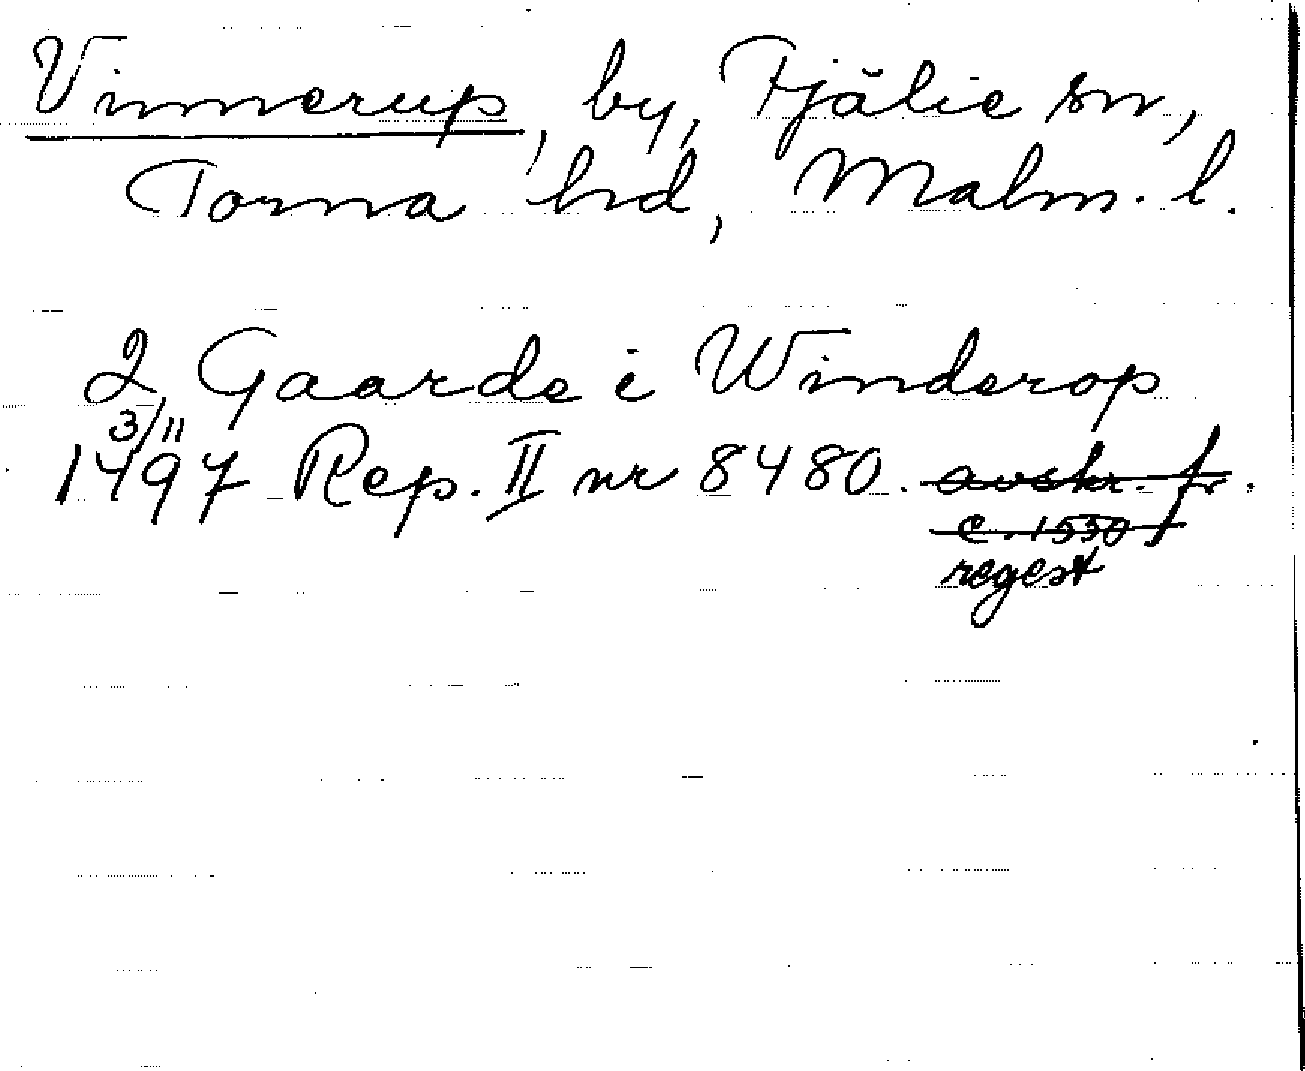 Vinnerup, by, Fjälie sn,
Torna hd, Malm. l.
2 Gaarde i Winderop
3/11
1497 Rep. II nr 8480. avskr. fr.
c. 1550
regest